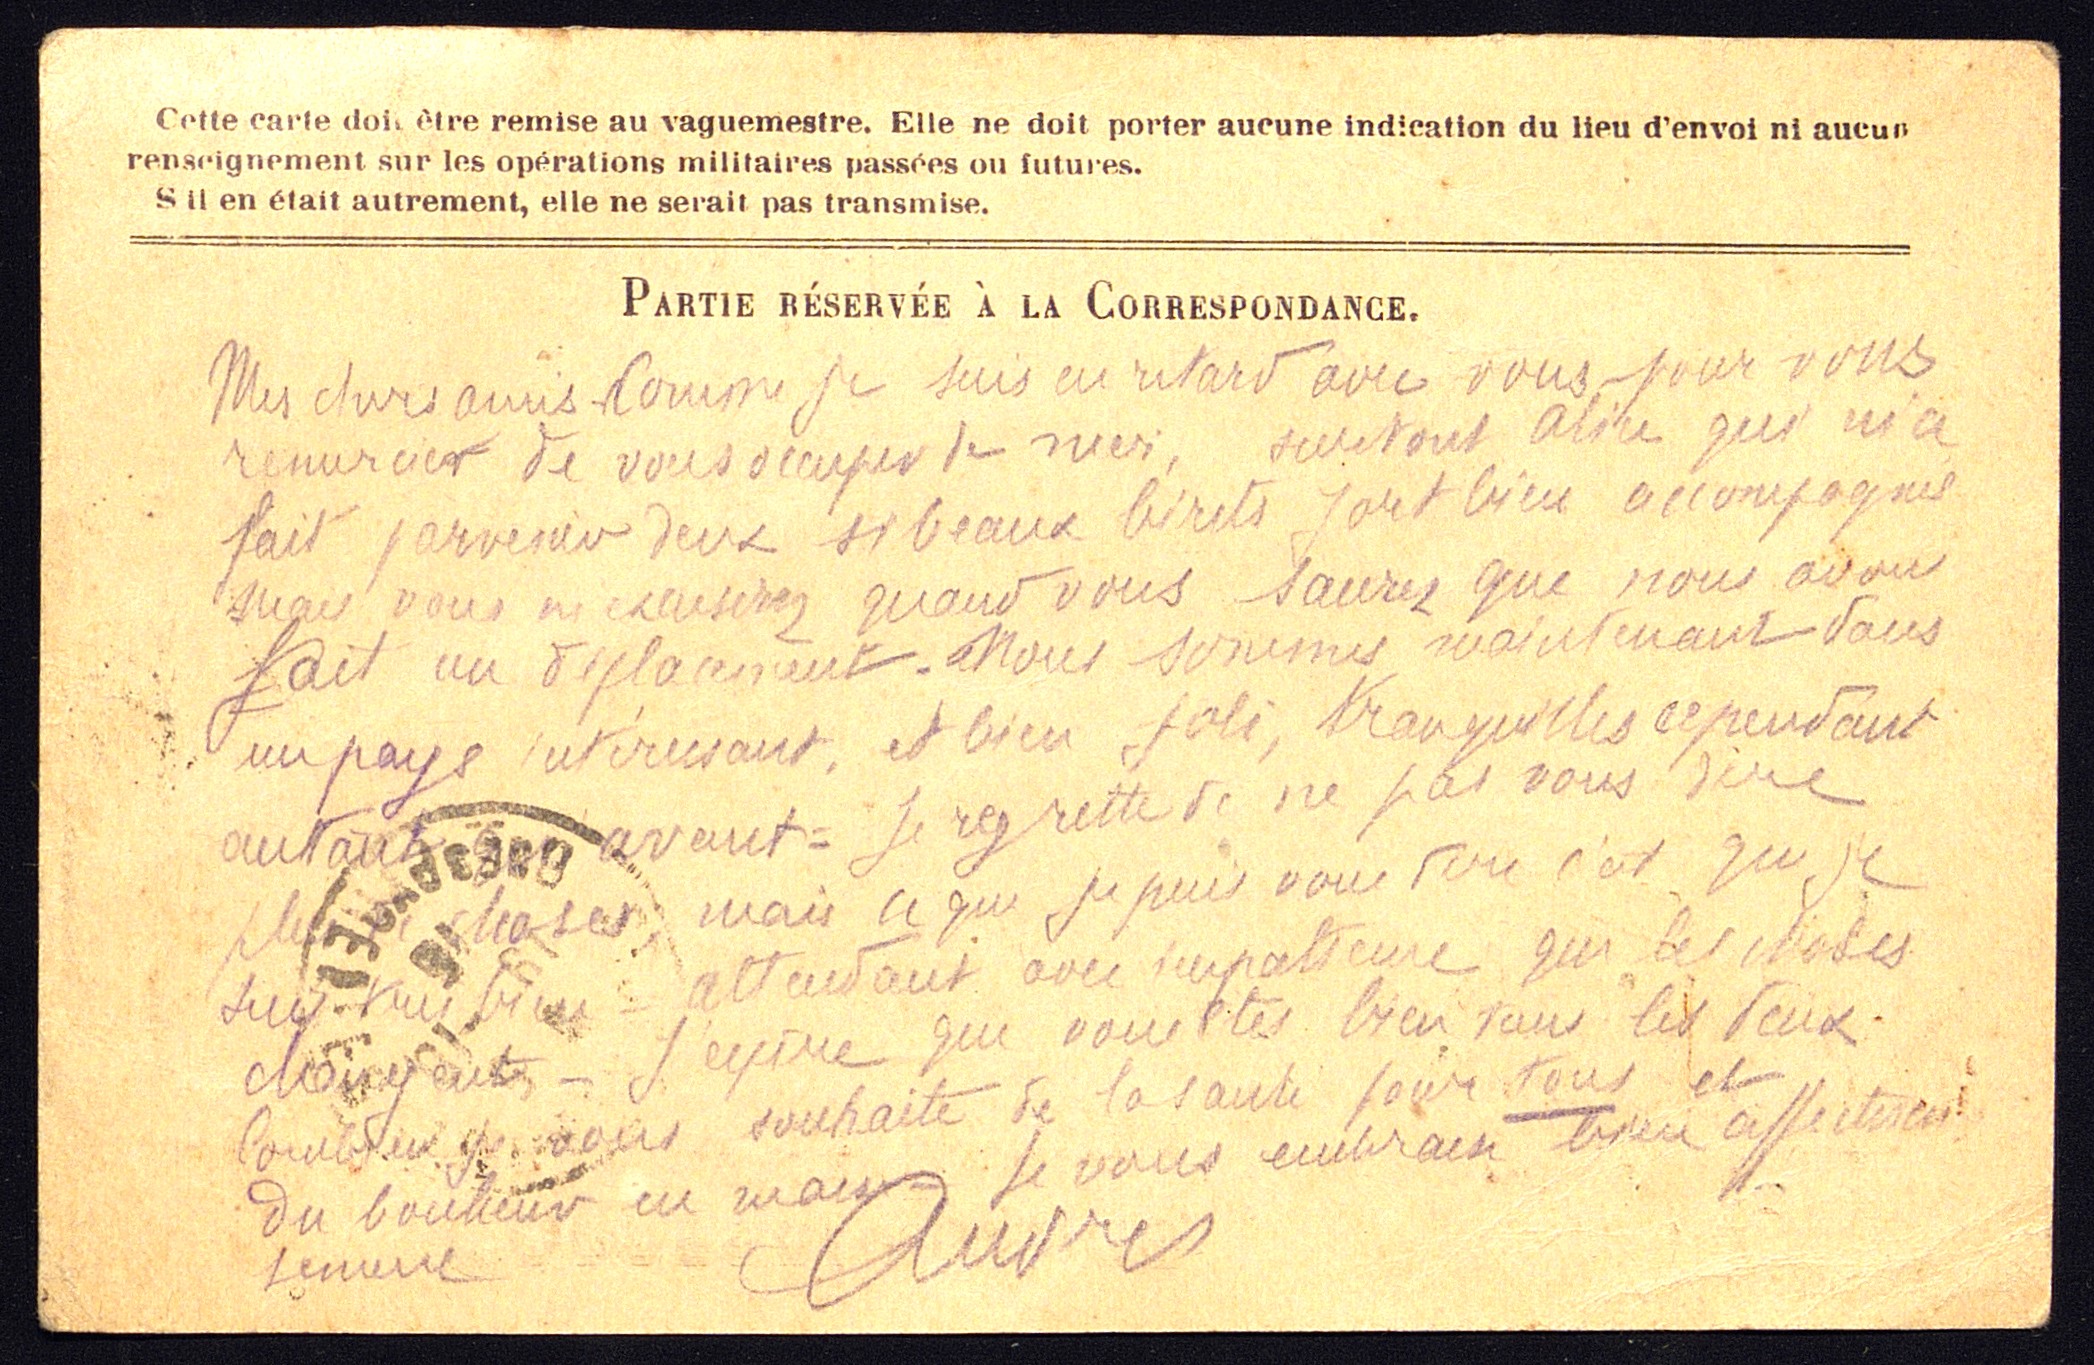 Cette carte doit être remise au vaguemestre. Elle ne doit porter aucune indication du lieu d'envoi ni aucun
renseignement sur les opérations militaires passées ou futures.
S'il en était autrement, elle ne serait pas transmise.
PARTIE RÉSERVÉE À LA CORRESPONDANCE.
Mes chers amis Comme je suis en retard avec vous pour vous
remercier de vous occuper de moi, surtout Aline qui m'a
fait parvenir deux si beaux bérets fort bien accompagnés
mais vous m'excuserez quand vous saurez que nous avons
fait un déplacement. Nous sommes maintenant dans
un pays intéressant, et bien joli, tranquilles cependant
autant qu'avant = Je regrette de ne pas vous dire
plus de choses, mais ce que je puis vous dire c'est que je
suis très bien = attendant avec impatience que les choses
changent, – J'espère que vous êtes bien tous les deux
Combien je vous souhaite de la santé pour tous et
du bonheur en masse = Je vous embrasse bien affectueu
sement
André